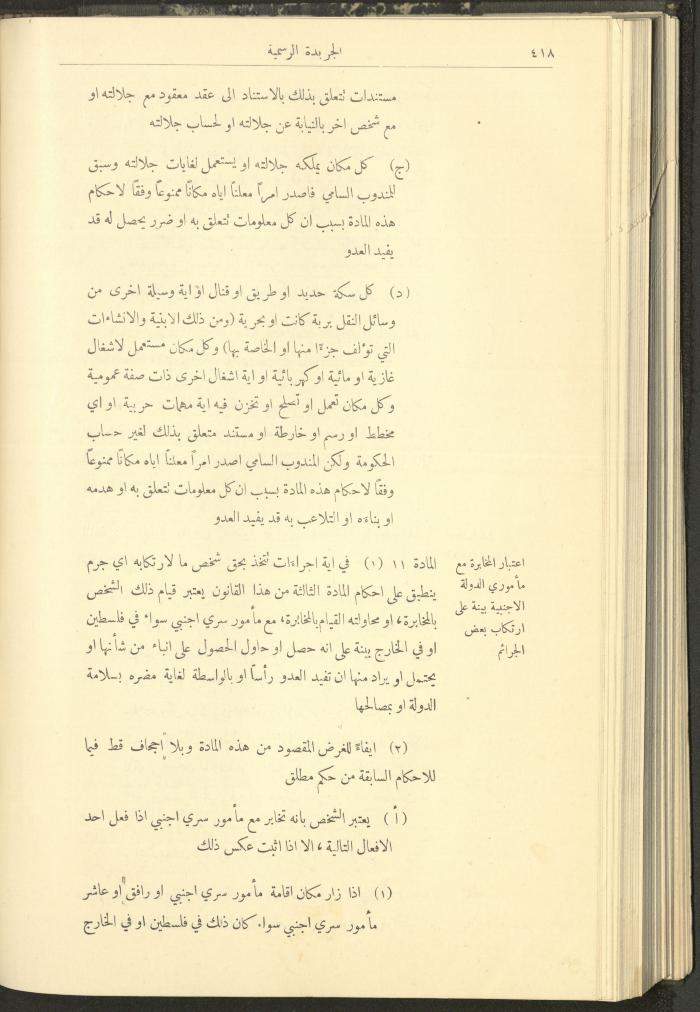 ٤١٨
الجريدة الرسمية
مستندات تتعلق بذلك بالاستناد الى عقد معقود مع جلالته او
مع شخص اخر بالنيابة عن جلالته او لحساب جلالته
(ج) كل مكان يملكه جلالته او يستعمل لغايات جلالته وسبق
للمندوب السامي فاصدر امراً معلناً اياه مكاناً ممنوعاً وفقاً لاحكام
هذه المادة بسبب ان كل معلومات تتعلق به او ضرر يحصل له قد
يفيد العدو
(د) كل سكة حديد او طريق او قنال او اية وسيلة اخرى من
وسائل النقل برية كانت او بحرية (ومن ذلك الابنية والانشاءات
التي تؤلف جزءًا منها او الخاصة بها) وكل مكان مستعمل لاشغال
غازية او مائية او كهربائية او اية اشغال اخرى ذات صفة عمومية
وكل مكان تعمل او تصلح او تخزن فيه اية مهمات حربية او اي
مخطط او رسم او خارطة او مستند متعلق بذلك لغير حساب
الحكومة ولكن المندوب السامي اصدر امراً معلناً اياه مكاناً ممنوعاً
وفقاً لاحكام هذه المادة بسبب ان كل معلومات تتعلق به او هدمه
او بناءه او التلاعب به قد يفيد العدو
اعتبار المخابرة مع
مأموري الدولة
الاجنبية بينة على
ارتكاب بعض
الجرائم
المادة ١١ (١) في اية اجراءات تتخذ بحق شخص ما لارتكابه اي جرم
ينطبق على احكام المادة الثالثة من هذا القانون يعتبر قيام ذلك الشخص
بالمخابرة، او محاولته القيام بالمخابرة، مع مأمور سري اجنبي سواء في فلسطين
او في الخارج بينة على انه حصل او حاول الحصول على انباء من شأنها او
يحتمل او يراد منها ان تفيد العدو رأساً او بالواسطة لغاية مضره بسلامة
الدولة او بمصالحها
(٢) ايفاءً للغرض المقصود من هذه المادة وبلا اجحاف قط فيما
للاحكام السابقة من حكم مطلق
(أ) يعتبر الشخص بانه تخابر مع مأمور سري اجنبي اذا فعل احد
الافعال التالية، الا اذا اثبت عكس ذلك
(١) اذا زار مكان اقامة مأمور سري اجنبي او رافق او عاشر
مأمور سري اجنبي سواء كان ذلك في فلسطين او في الخارج